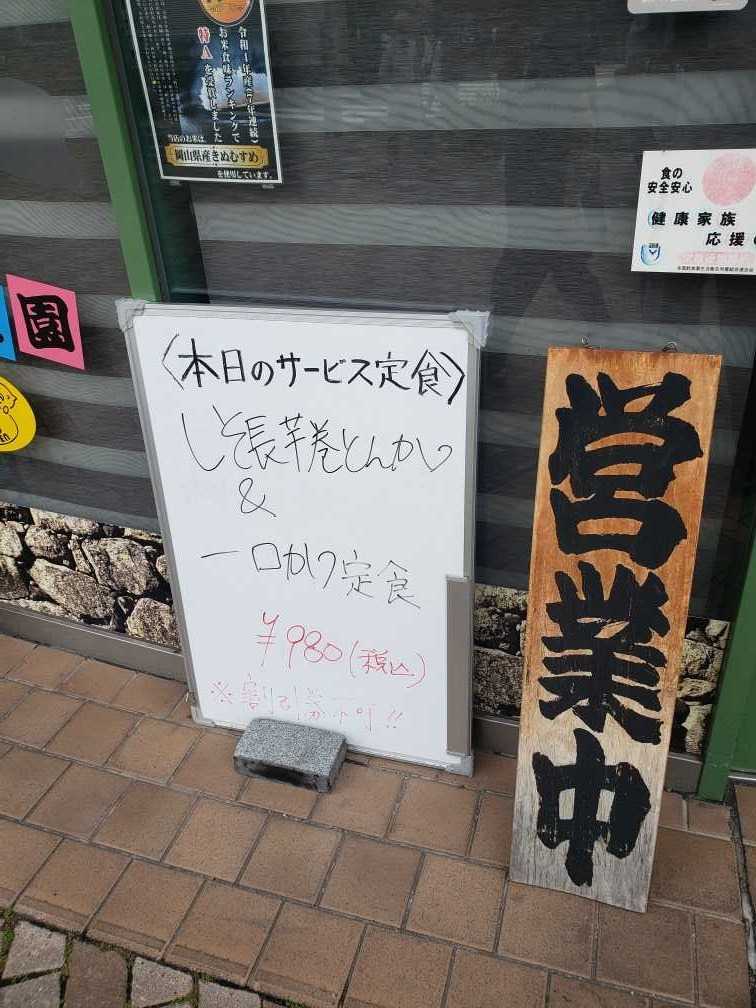 令和1年産(7年連続)
お米食味ランキングで
特Aを獲得しました
当店のお米は、
岡山県産きぬむすめ
を使用しています。
食の
安全安心
健康家族
応援
園
〈本日のサービス定食〉
しそ長芋巻とんかつ
&
一口かつ定食
¥980(税込)
※割引券不可!!
営業中